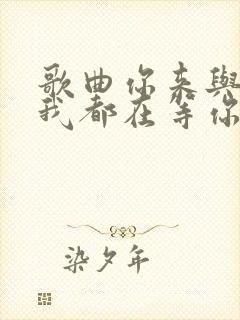 歌曲你来與
我都在等你
染夕年